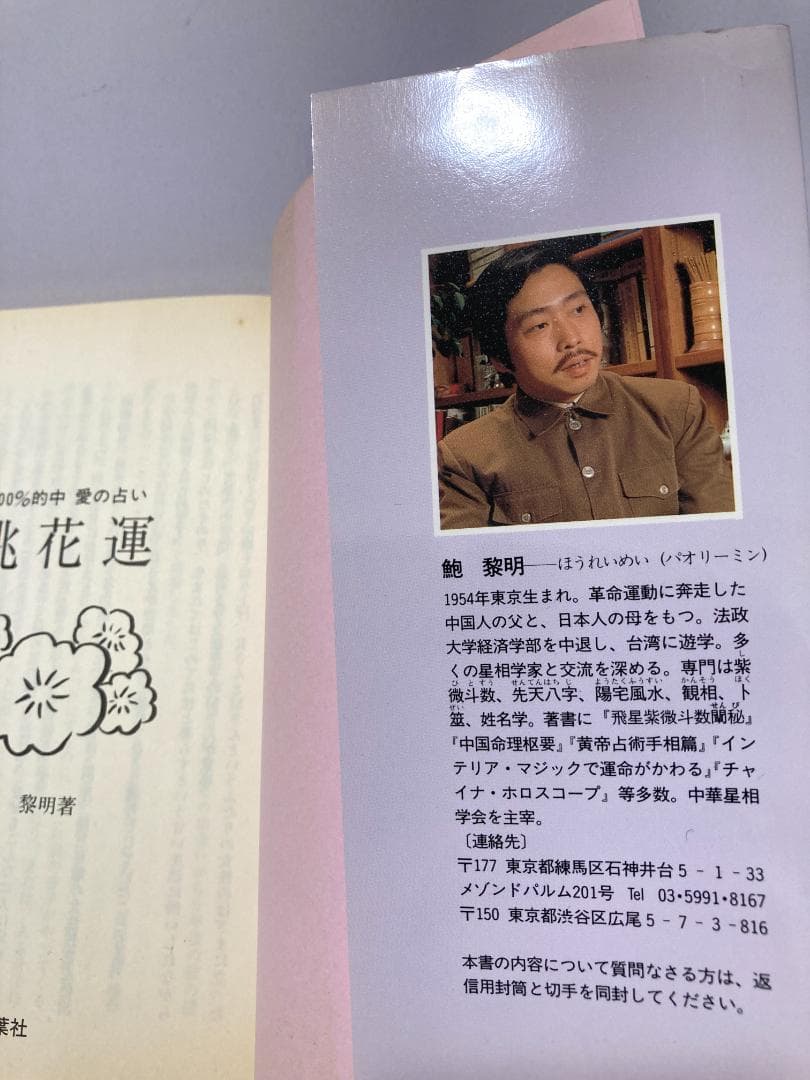 00%的中 愛の占い
桃花運
黎明著
葉社
鮑 黎明──ほうれいめい（パオリーミン）
1954年東京生まれ。革命運動に奔走した
中国人の父と、日本人の母をもつ。法政
大学経済学部を中退し、台湾に遊学。多
くの星相学家と交流を深める。専門は紫
微斗数、先天八字、陽宅風水、観相、卜
筮、姓名学。著書に『飛星紫微斗数闡秘』
『中国命理枢要』『黄帝占術手相篇』『イン
テリア・マジックで運命がかわる』『チャ
イナ・ホロスコープ』等多数。中華星相
学会を主宰。
〔連絡先〕
〒177 東京都練馬区石神井台5-1-33
メゾンドパルム201号 Tel 03・5991・8167
〒150 東京都渋谷区広尾5-7-3-816
本書の内容について質問なさる方は、返
信用封筒と切手を同封してください。